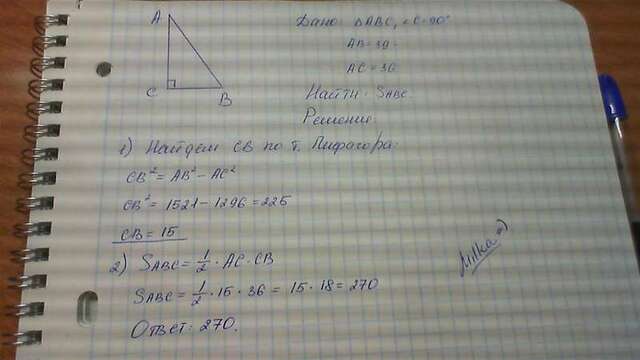 A
C
B
Дано ΔABC, <C=90°
AB=39
AC=36
Найти: SABC.
Решение:
1) Найдем CB по т. Пифагора:
CB²=AB²-AC²
CB²=1521-1296=225
CB=15
2) SABC=1/2·AC·CB
SABC=1/2·15·36=15·18=270
Ответ: 270.
Milka))